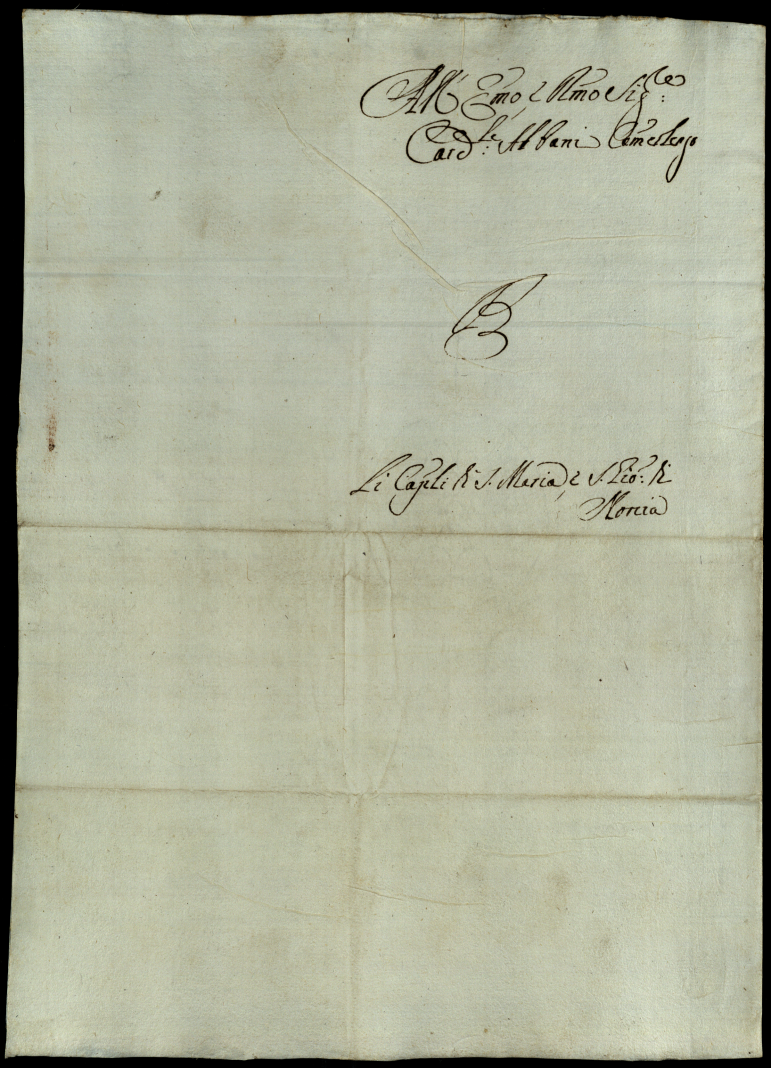 All' Emo, e Rmo Sig.re
Card.le Albani Camerlengo
P
Li Capli di S. Maria, e S. Gio: di
Norcia